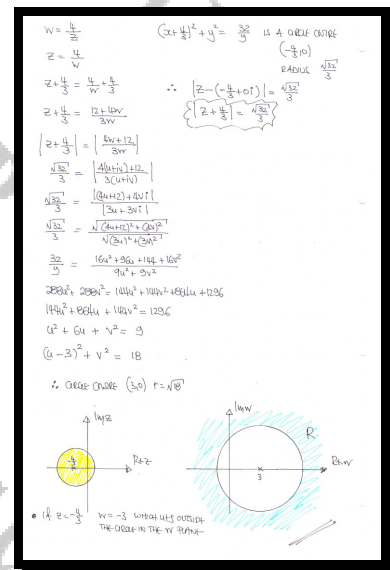 w = 4/z
z = 4/w
z + 4/3 = 4/w + 4/3
z + 4/3 = (12 + 4w)/3w
|z + 4/3| = |(4w + 12)/3w|
√32/3 = |(4(u+iv) + 12)/3(u+iv)|
√32/3 = |(4u+12) + 4vi|/|3u + 3vi|
√32/3 = √((4u+12)² + (4v)²)/√((3u)² + (3v)²)
32/9 = (16u² + 96u + 144 + 16v²)/(9u² + 9v²)
288u² + 288v² = 144u² + 144v² + 864u + 1296
144u² + 864u + 144v² = 1296
u² + 6u + v² = 9
(u - 3)² + v² = 18
∴ CIRCLE CENTRE (3,0) r = √18
(x + 4/3)² + y² = 32/9 IS A CIRCLE CENTRE
(-4/3, 0)
RADIUS √32/3
∴ |z - (-4/3 + 0i)| = √32/3
|z + 4/3| = √32/3
Im z
-4/3
Re z
Im w
R
Re w
3
• If z = -4/3 w = -3 WHICH LIES OUTSIDE
THE CIRCLE IN THE W PLANE